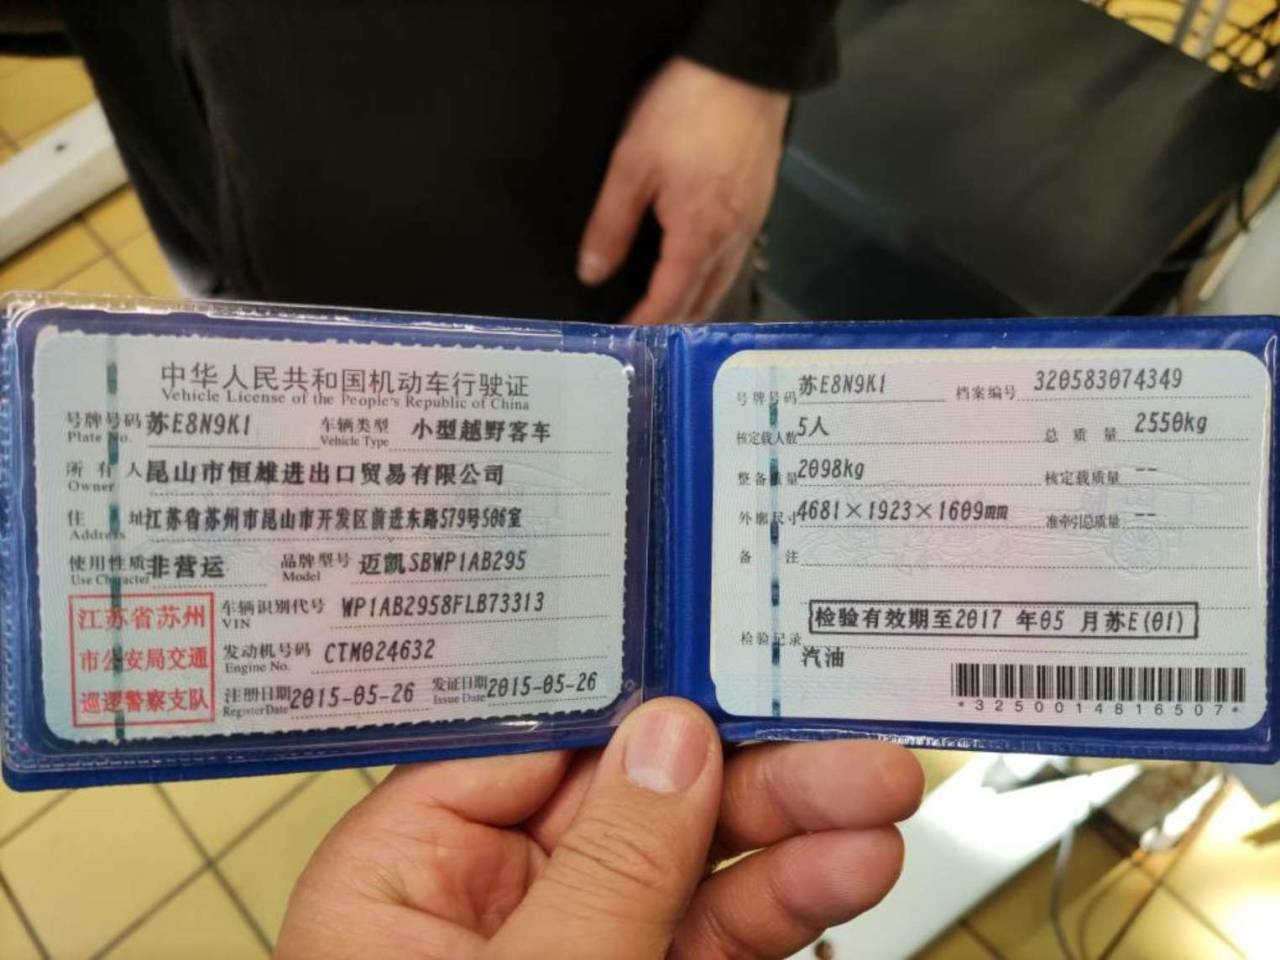 中华人民共和国机动车行驶证
Vehicle License of the People's Republic of China
号牌号码 苏E8N9K1 车辆类型 小型越野客车
Plate No. Vehicle Type
所有人 昆山市恒雄进出口贸易有限公司
Owner
住址 江苏省苏州市昆山市开发区前进东路579号506室
Address
使用性质 非营运 品牌型号 迈凯SBWP1AB295
Use Character Model
江苏省苏州
市公安局交通
巡逻警察支队
车辆识别代号 WP1AB2958FLB73313
VIN
发动机号码 CTM024632
Engine No.
注册日期 2015-05-26 发证日期 2015-05-26
Register Date Issue Date
号牌号码 苏E8N9K1 档案编号 320583074349
核定载人数 5人 总质量 2550kg
整备质量 2098kg 核定载质量 --
外廓尺寸 4681×1923×1609mm 准牵引总质量 --
备注
检验有效期至2017 年05 月苏E(01)
检验记录
汽油
*3250014816507*